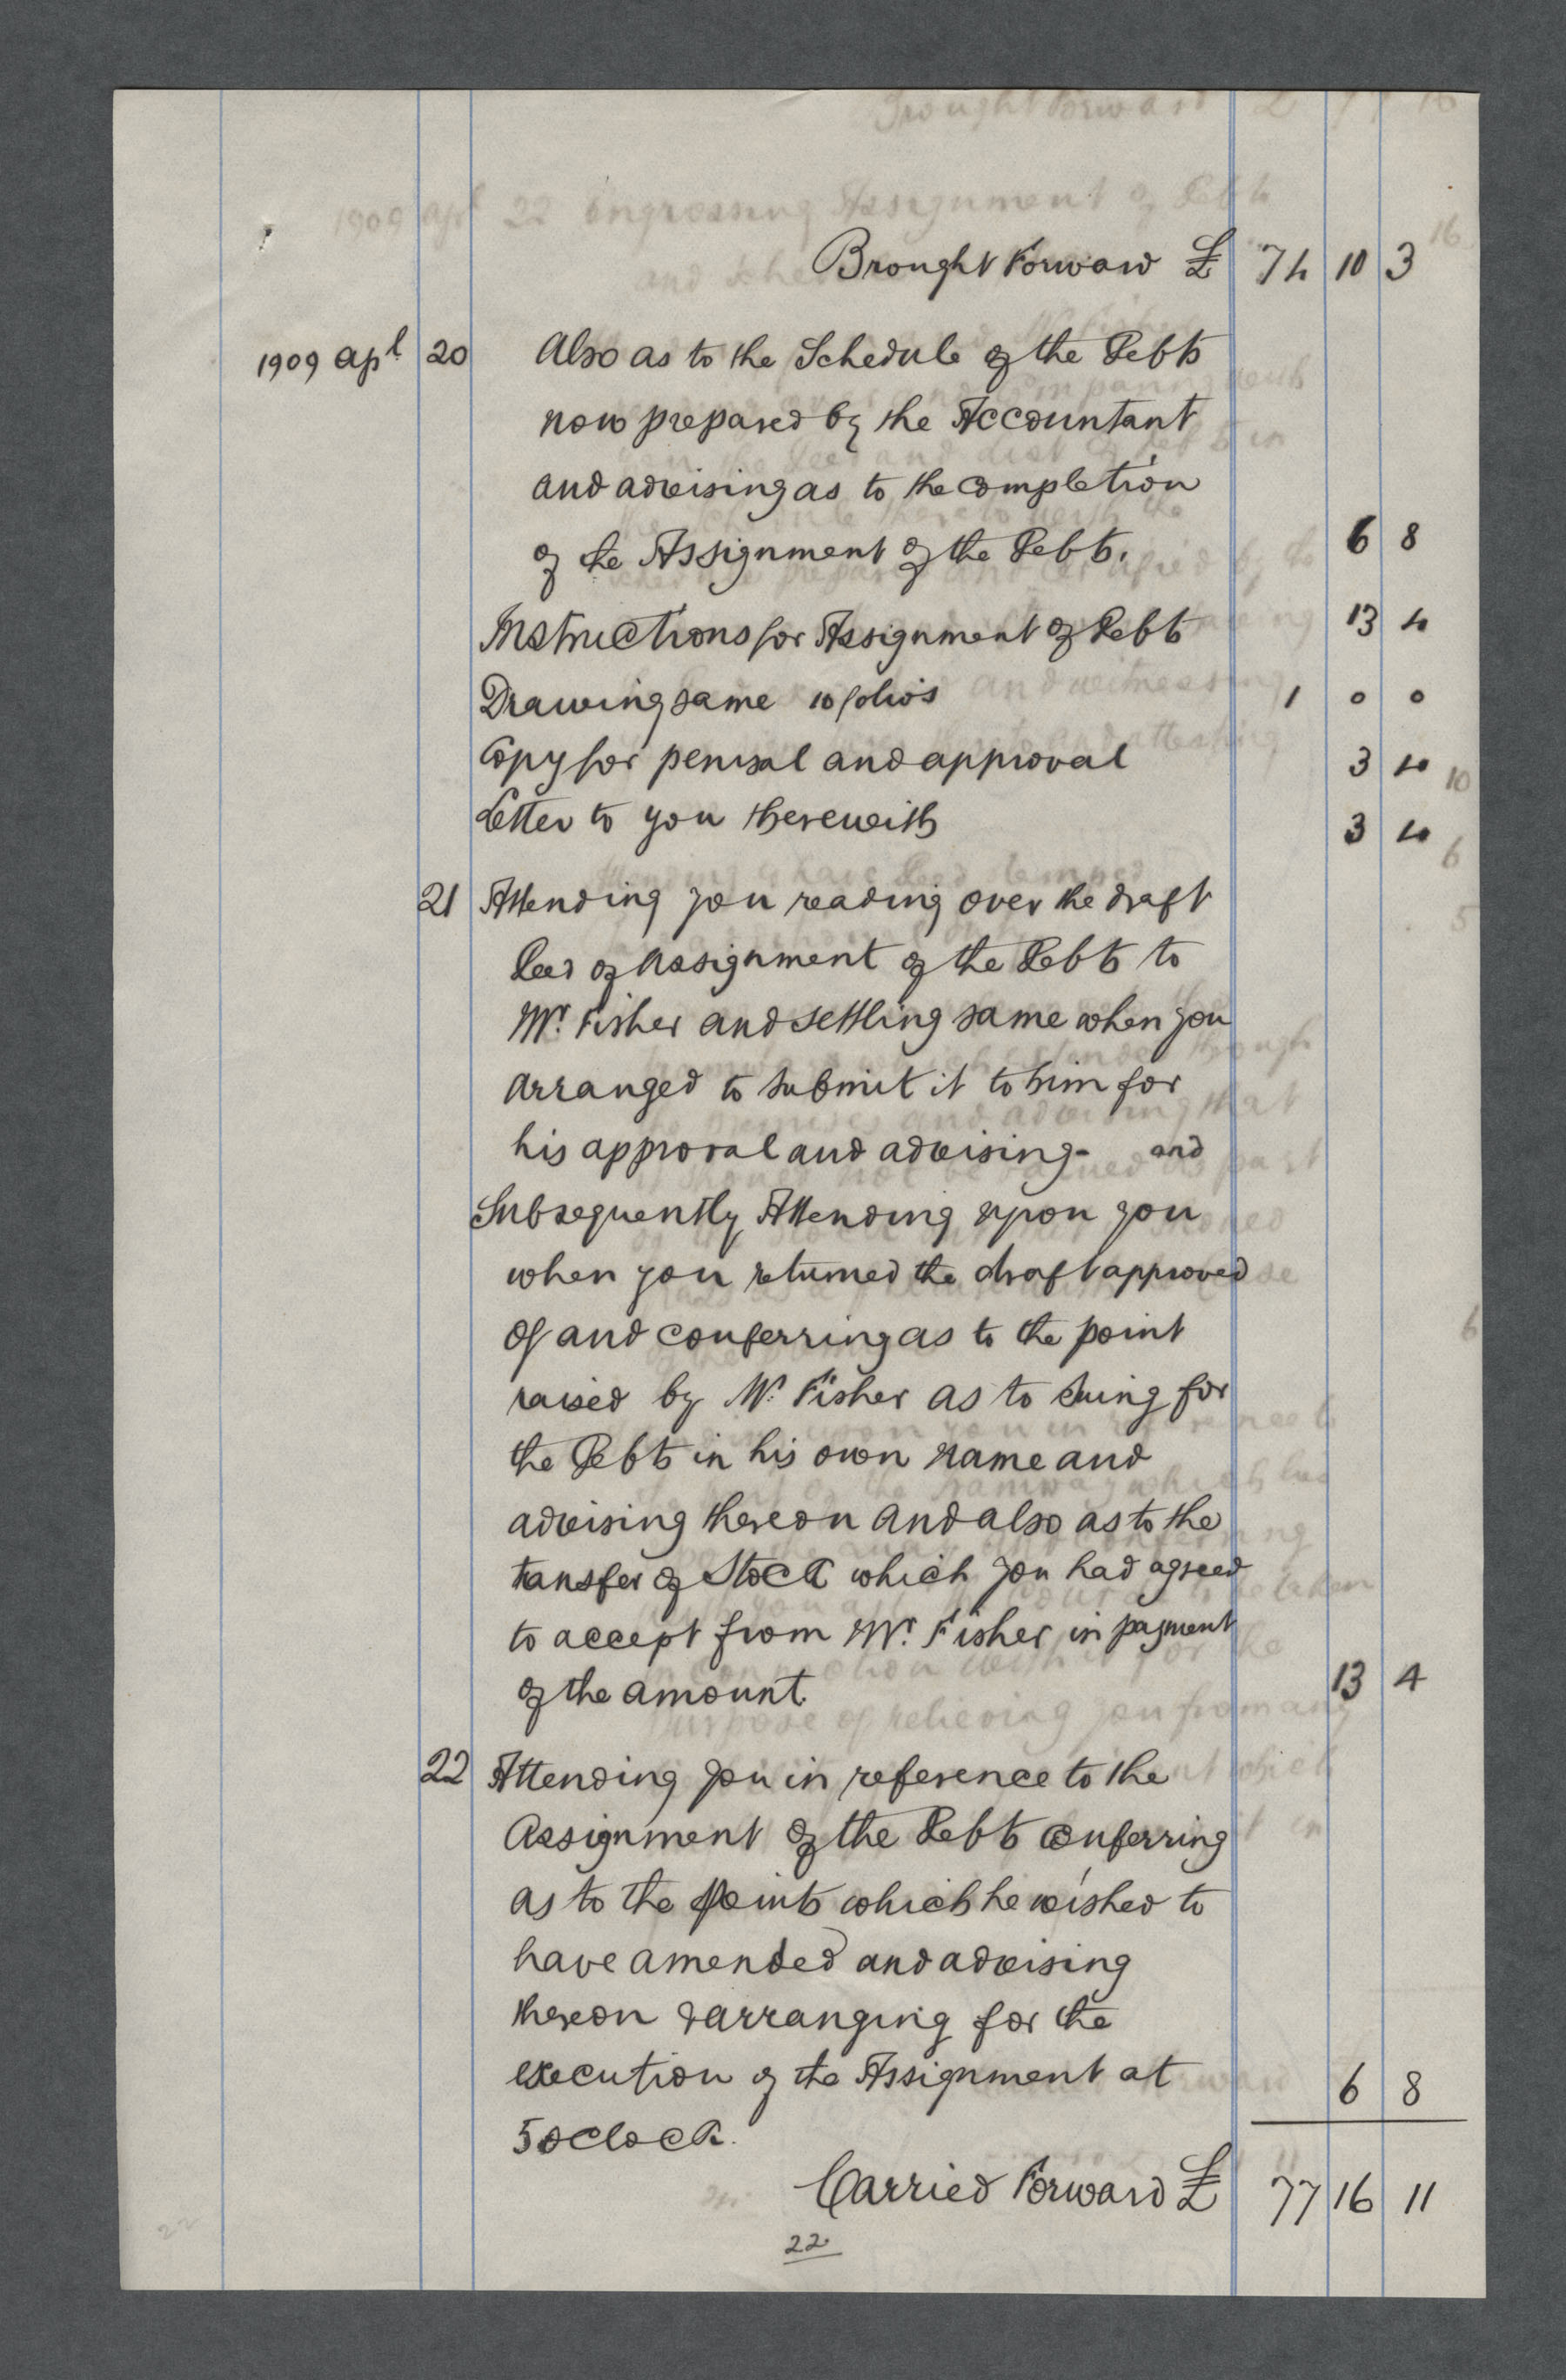 Brought Forward £ 74 10 3
1909 Apl. 20 Also as to the Schedule of the Debts
now prepared by the Accountant
and advising as to the completion
of the Assignment of the Debts. 6 8
Instructions for Assignment of Debts 13 4
Drawing same 10 folios 1 0 0
Copy for perusal and approval 3 4
Letter to you therewith 3 4
21 Attending you reading over the draft
Deed of Assignment of the Debts to
Mr. Fisher and settling same when you
arranged to submit it to him for
his approval and advising - and
Subsequently Attending upon you
when you returned the draft approved
of and conferring as to the point
raised by Mr. Fisher as to suing for
the Debts in his own name and
advising thereon and also as to the
transfer of Stock which you had agreed
to accept from Mr. Fisher in payment
of the amount. 13 4
22 Attending you in reference to the
Assignment of the Debts conferring
as to the points which he wished to
have amended and advising
thereon & arranging for the
execution of the Assignment at 6 8
5 oclock.
Carried Forward £ 77 16 11
22